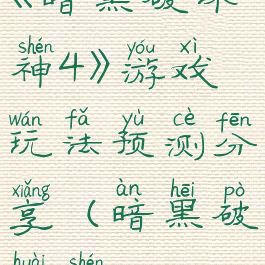 《暗黑破坏
shén yóu xì
神4》游戏
wán fǎ yù cè fēn
玩法预测分
xiǎng àn hēi pò
享（暗黑破
huài shén